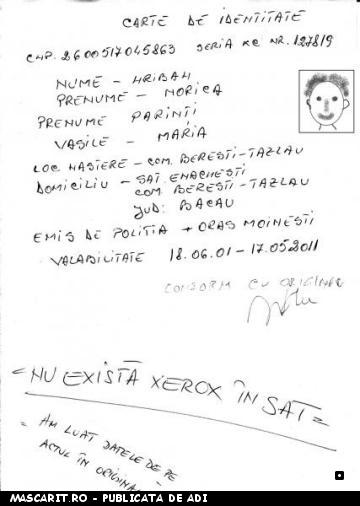 CARTE DE IDENTITATE
CNP. 2600517045863 SERIA XC NR. 127819
NUME - HRIBAH
PRENUME - NORICA
PRENUME PARINTI
VASILE - MARIA
LOC NASTERE - COM. BERESTI-TAZLAU
DOMICILIU - SAT. ENACHESTI
COM BERESTI-TAZLAU
JUD: BACAU
EMIS DE POLITIA + ORAS MOINESTI
VALABILITATE 18.06.01 - 17.05.2011
CONFORM CU ORIGINAL
= NU EXISTĂ XEROX ÎN SAT =
= AM LUAT DATELE DE PE
ACTUL ÎN ORIGINAL
MASCARIT.RO - PUBLICATA DE ADI